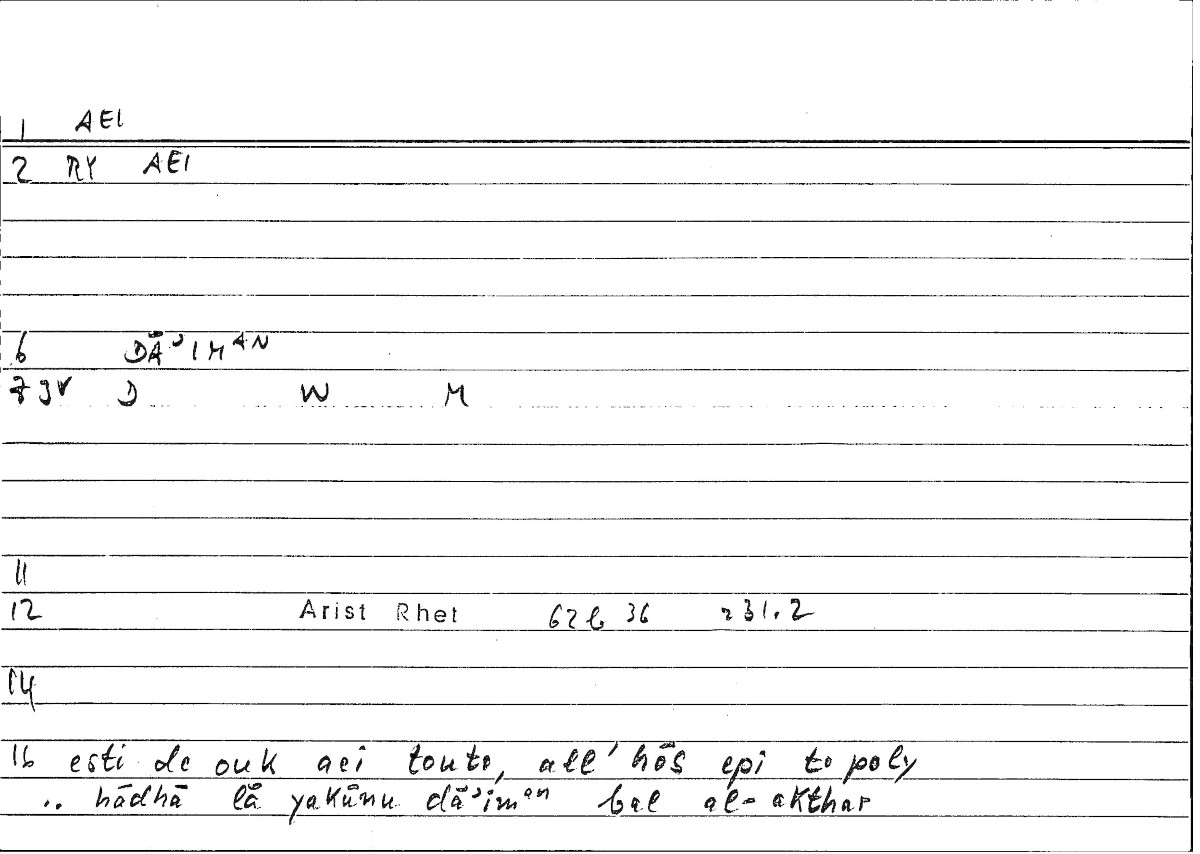 1 AEI
2 RY AEI
6 DĀʾIMᴬᴺ
7 JV D W M
11
12 Arist Rhet 62b 36 231.2
14
16 esti de ouk aei touto, all' hōs epi to poly
.. hādhā lā yakūnu dāʾimᵃⁿ bal al-akthar